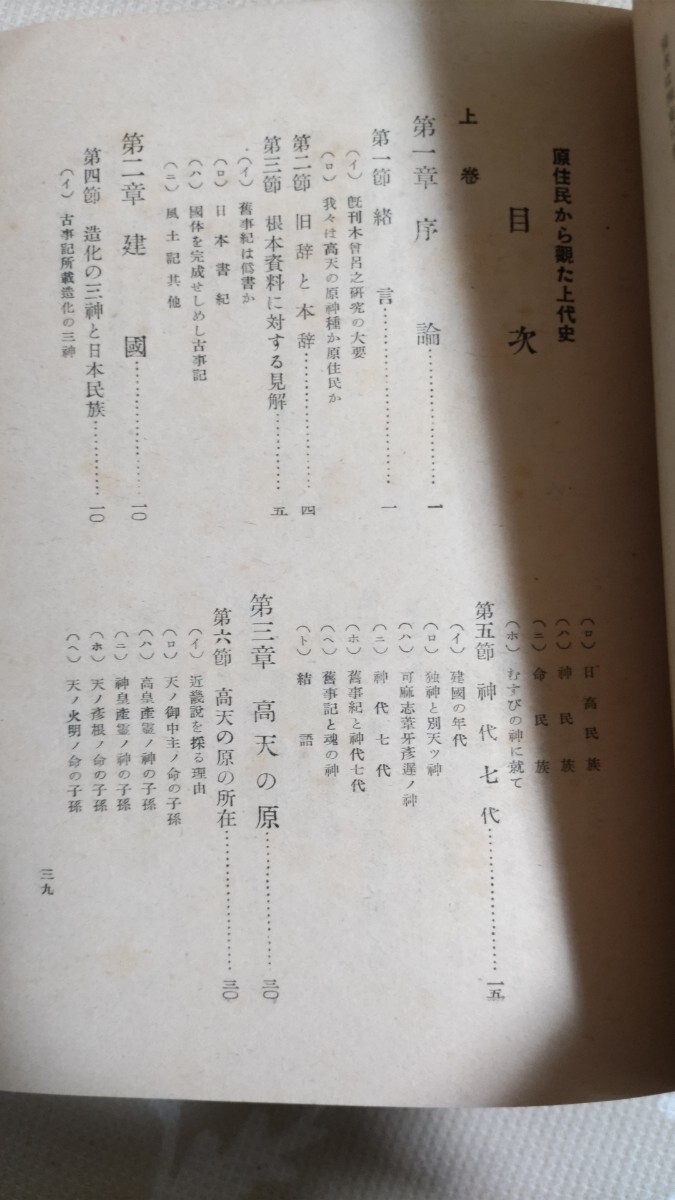 原住民から観た上代史
目次
上巻
第一章 序論……………一
第一節 緒言……………一
(イ) 既刊木曾呂之研究の大要
(ロ) 我々は高天の原神種か原住民か
第二節 旧辞と本辞……………四
第三節 根本資料に対する見解……………五
(イ) 舊事紀は僞書か
(ロ) 日本書紀
(ハ) 國体を完成せしめし古事記
(ニ) 風土記其他
第二章 建國……………一〇
第四節 造化の三神と日本民族……………一〇
(イ) 古事記所載造化の三神
(ロ) 日高民族
(ハ) 神民族
(ニ) 命民族
(ホ) むすびの神に就て
第五節 神代七代……………一五
(イ) 建國の年代
(ロ) 独神と別天ツ神
(ハ) 可麻志葦牙彦遅ノ神
(ニ) 神代七代
(ホ) 舊事紀と神代七代
(ヘ) 舊事記と魂の神
(ト) 結語
第三章 高天の原……………三〇
第六節 高天の原の所在……………三〇
(イ) 近畿説を採る理由
(ロ) 天ノ御中主ノ命の子孫
(ハ) 高皇産霊ノ神の子孫
(ニ) 神皇産霊ノ神の子孫
(ホ) 天ノ彦根ノ命の子孫
(ヘ) 天ノ火明ノ命の子孫
三九